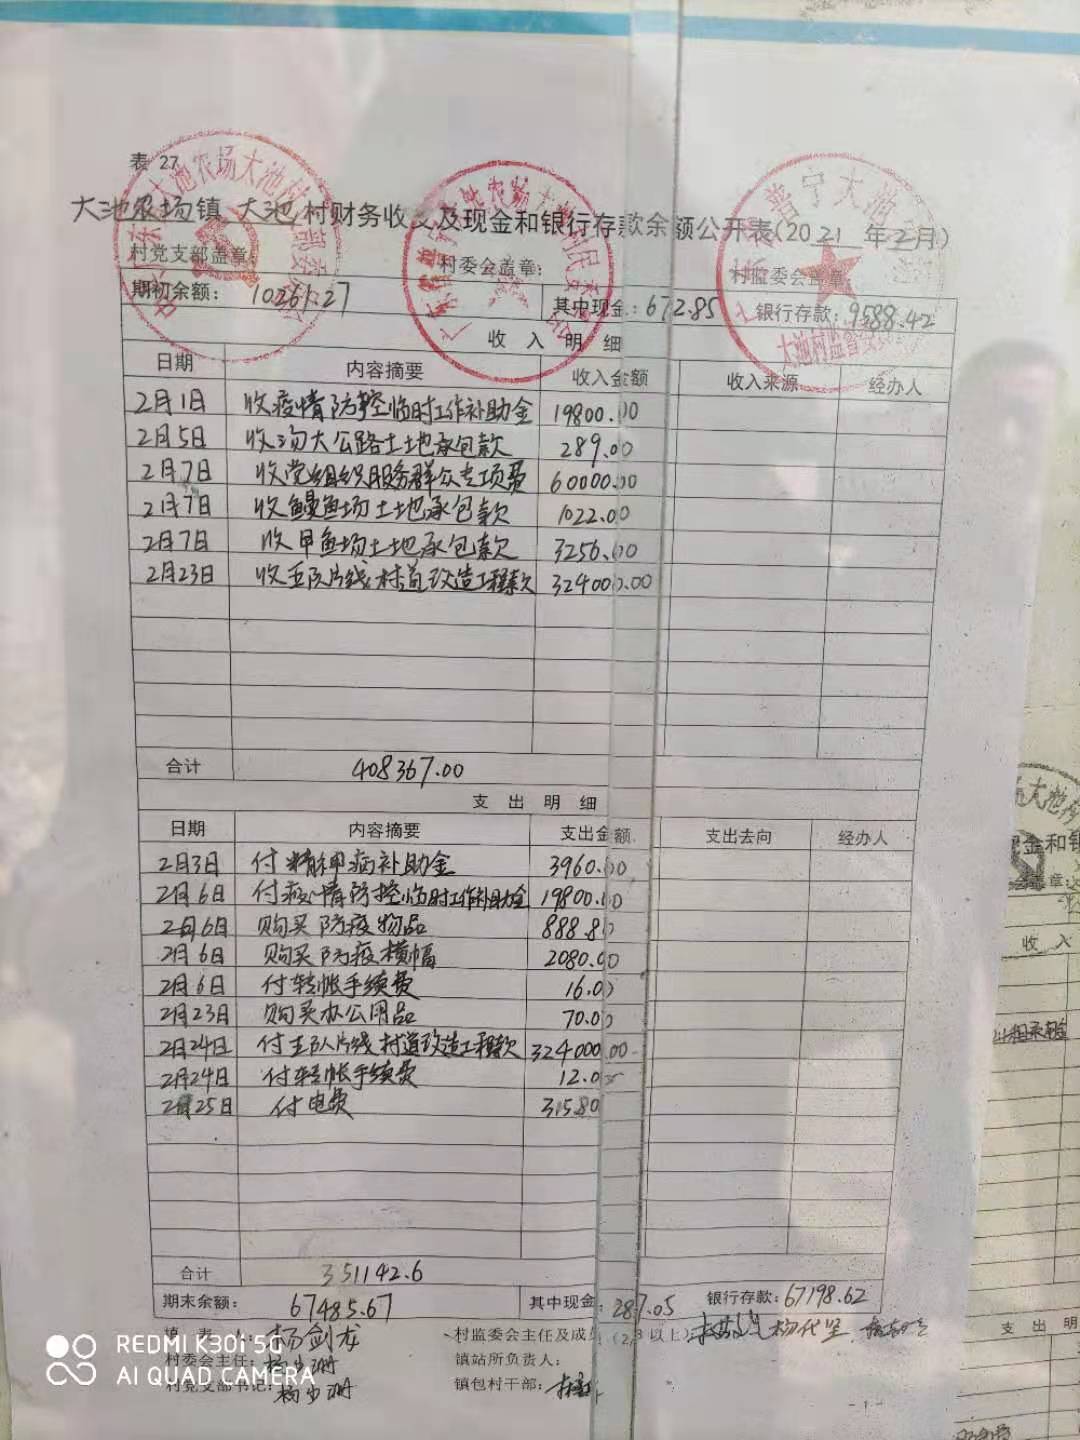 表 27
大池农场镇 大池 村财务收支及现金和银行存款余额公开表(2021 年2月)
村党支部盖章: 村委会盖章: 村监委会盖章
期初余额: 10261.27 其中现金: 672.85 银行存款: 9588.42
收 入 明 细
日期 内容摘要 收入金额 收入来源 经办人
2月1日 收疫情防控临时工作补助金 19800.00
2月5日 收汤大公路土地承包款 289.00
2月7日 收党组织服务群众专项费 60000.00
2月7日 收鳗鱼场土地承包款 1022.00
2月7日 收甲鱼场土地承包款 3256.00
2月23日 收五队片线村道改造工程款 324000.00
合计 408367.00
支 出 明 细
日期 内容摘要 支出金额 支出去向 经办人
2月3日 付精神病补助金 3960.00
2月6日 付疫情防控临时工作补助金 19800.00
2月6日 购买防疫物品 888.80
2月6日 购买防疫横幅 2080.00
2月6日 付转帐手续费 16.00
2月23日 购买办公用品 70.00
2月24日 付五队片线村道改造工程款 324000.00
2月24日 付转帐手续费 12.0
2月25日 付电费 315.80
合计 351142.6
期末余额: 67485.67 其中现金: 287.05 银行存款: 67198.62
填 表 人: 杨剑龙 村监委会主任及成员(2/3以上): 杨代坚
村委会主任: 镇站所负责人:
村党支部书记: 镇包村干部:
-1-
REDMI K30i 5G
AI QUAD CAMERA